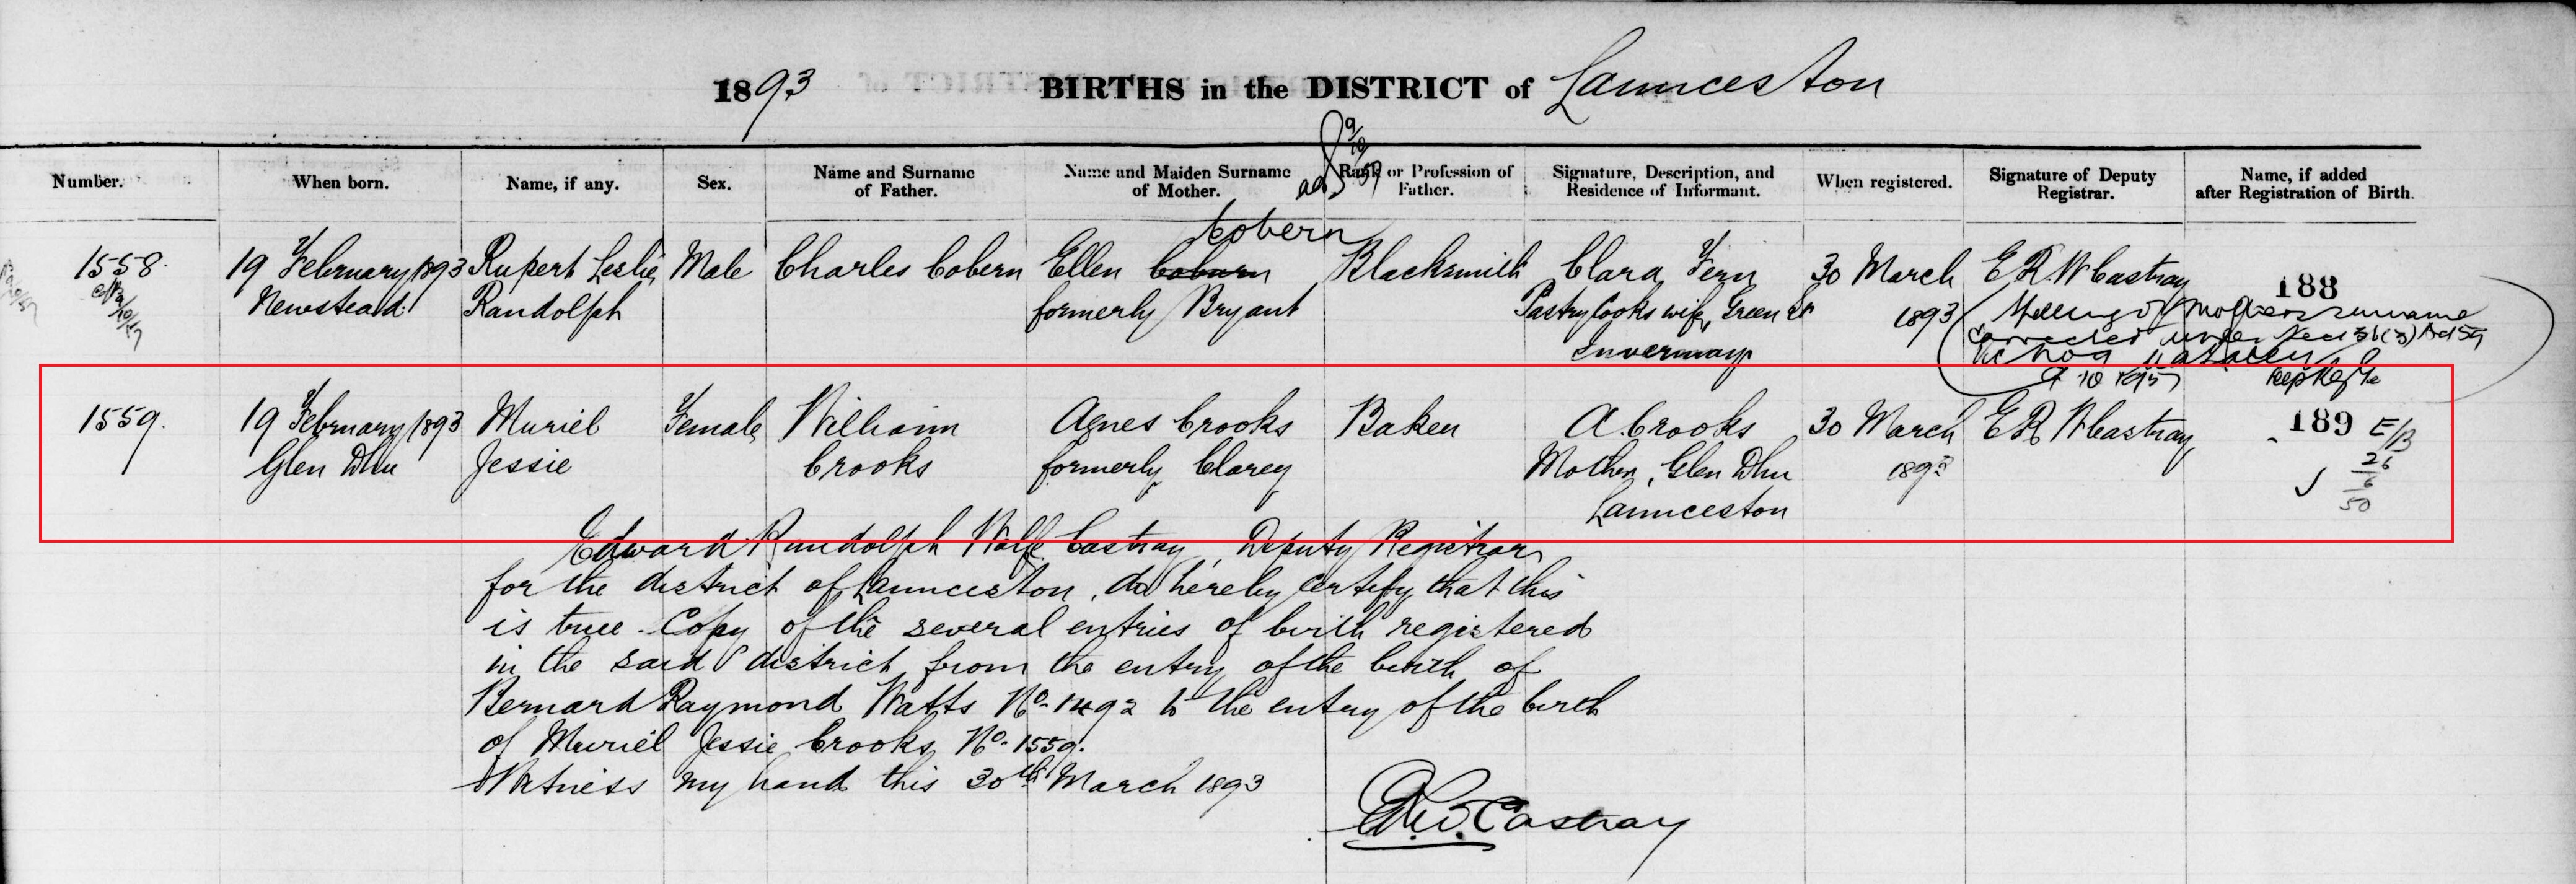 1893 BIRTHS in the DISTRICT of Launceston
9/10/57
Number. When born. Name, if any. Sex. Name and Surname of Father. Name and Maiden Surname of Mother. Rank or Profession of Father. Signature, Description, and Residence of Informant. When registered. Signature of Deputy Registrar. Name, if added after Registration of Birth.
Cobern
1558. 19 February 1893 Rupert Leslie Male Charles Cobern Ellen Coburn Blacksmith Clara Fern 30 March E R W Castray 188
Newstead Randolph formerly Bryant Pastrycooks wife, Green St 1893 Spelling of Mother's surname
Invermay corrected under Sec 36(3) Act 59
Vic No 9
9 10 1957 Dep Reg
1559. 19 February 1893 Muriel Female William Agnes Crooks Baker A. Crooks 30 March E R W Castray 189 E/B
Glen Dhu Jessie Crooks formerly Clarey Mother, Glen Dhu 1893 26
Launceston 6
50
Edward Randolph Wolfe Castray, Deputy Registrar
for the district of Launceston, do hereby certify that this
is true Copy of the several entries of birth registered
in the said district from the entry of the birth of
Bernard Raymond Watts No. 1492 to the entry of the birth
of Muriel Jessie Crooks No. 1559.
Witness my hand this 30th March 1893
E.R.W. Castray